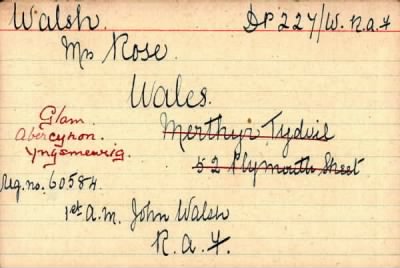 Walsh. DP 227/W. R.a.F
Mrs Rose.
Wales.
Glam.
Abercynon.
Yngsmeurig.
Merthyr Tydvil
52 Plymouth Street
Reg. no. 60584.
1st a.m. John Walsh
R.a.F.